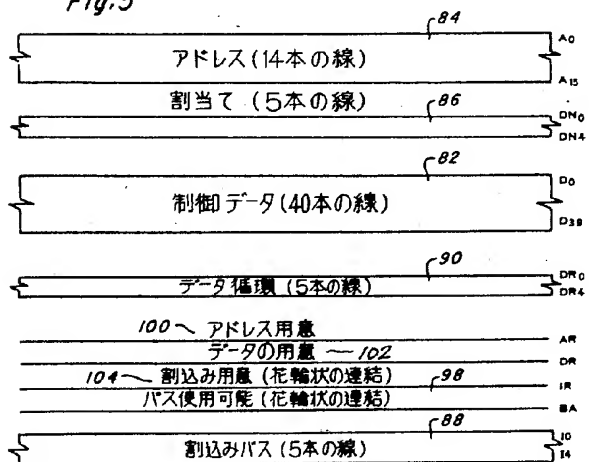 Fig.5
84
アドレス(14本の線)
A0
A15
割当て (5本の線)
86
DN0
DN4
82
制御データ(40本の線)
D0
D39
90
データ循環 (5本の線)
DR0
DR4
100 アドレス用意
AR
データの用意 102
DR
104 割込み用意 (花輪状の連結)
98
IR
バス使用可能 (花輪状の連結)
BA
88
割込みバス (5本の線)
I0
I4